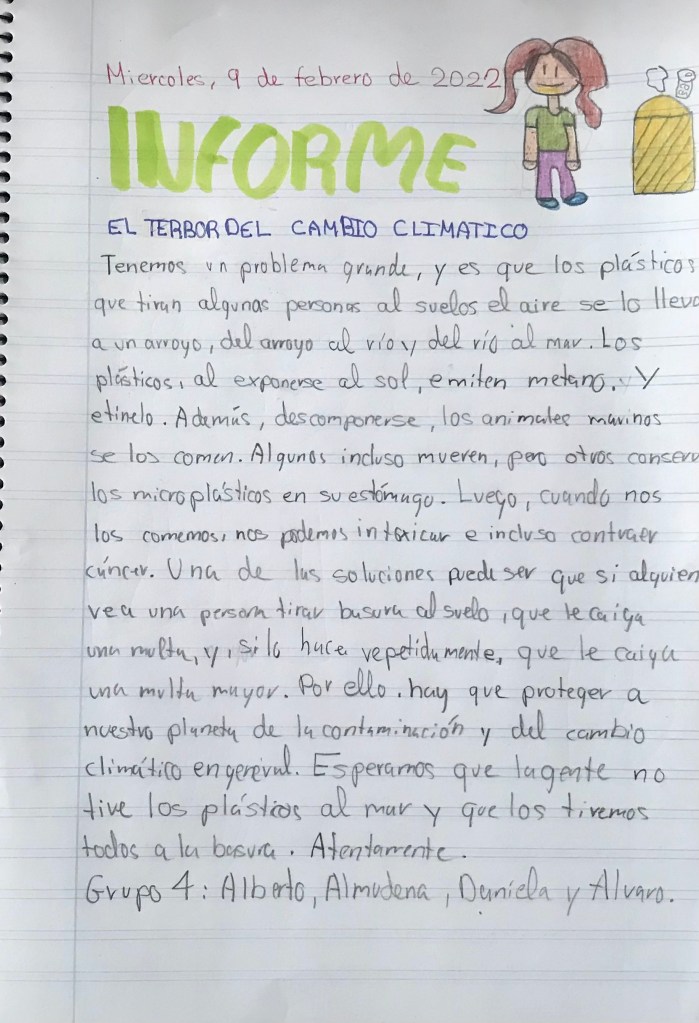 Miercoles, 9 de febrero de 2022
INFORME
EL TERROR DEL CAMBIO CLIMATICO
Tenemos un problema grande, y es que los plásticos
que tiran algunas personas al suelos el aire se lo lleva
a un arroyo, del arroyo al río y del río al mar. Los
plásticos, al exponerse al sol, emiten metano. Y
etinelo. Además, descomponerse, los animales marinos
se los comen. Algunos incluso mueren, pero otros conserv
los microplásticos en su estómago. Luego, cuando nos
los comemos, nos podemos intoxicar e incluso contraer
cáncer. Una de las soluciones puede ser que si alguien
vea una persona tirar basura al suelo, que le caiga
una multa, y, si lo hace repetidamente, que le caiga
una multa mayor. Por ello, hay que proteger a
nuestro planeta de la contaminación y del cambio
climático en general. Esperamos que la gente no
tire los plásticos al mar y que los tiremos
todos a la basura. Atentamente.
Grupo 4: Alberto, Almudena, Daniela y Alvaro.